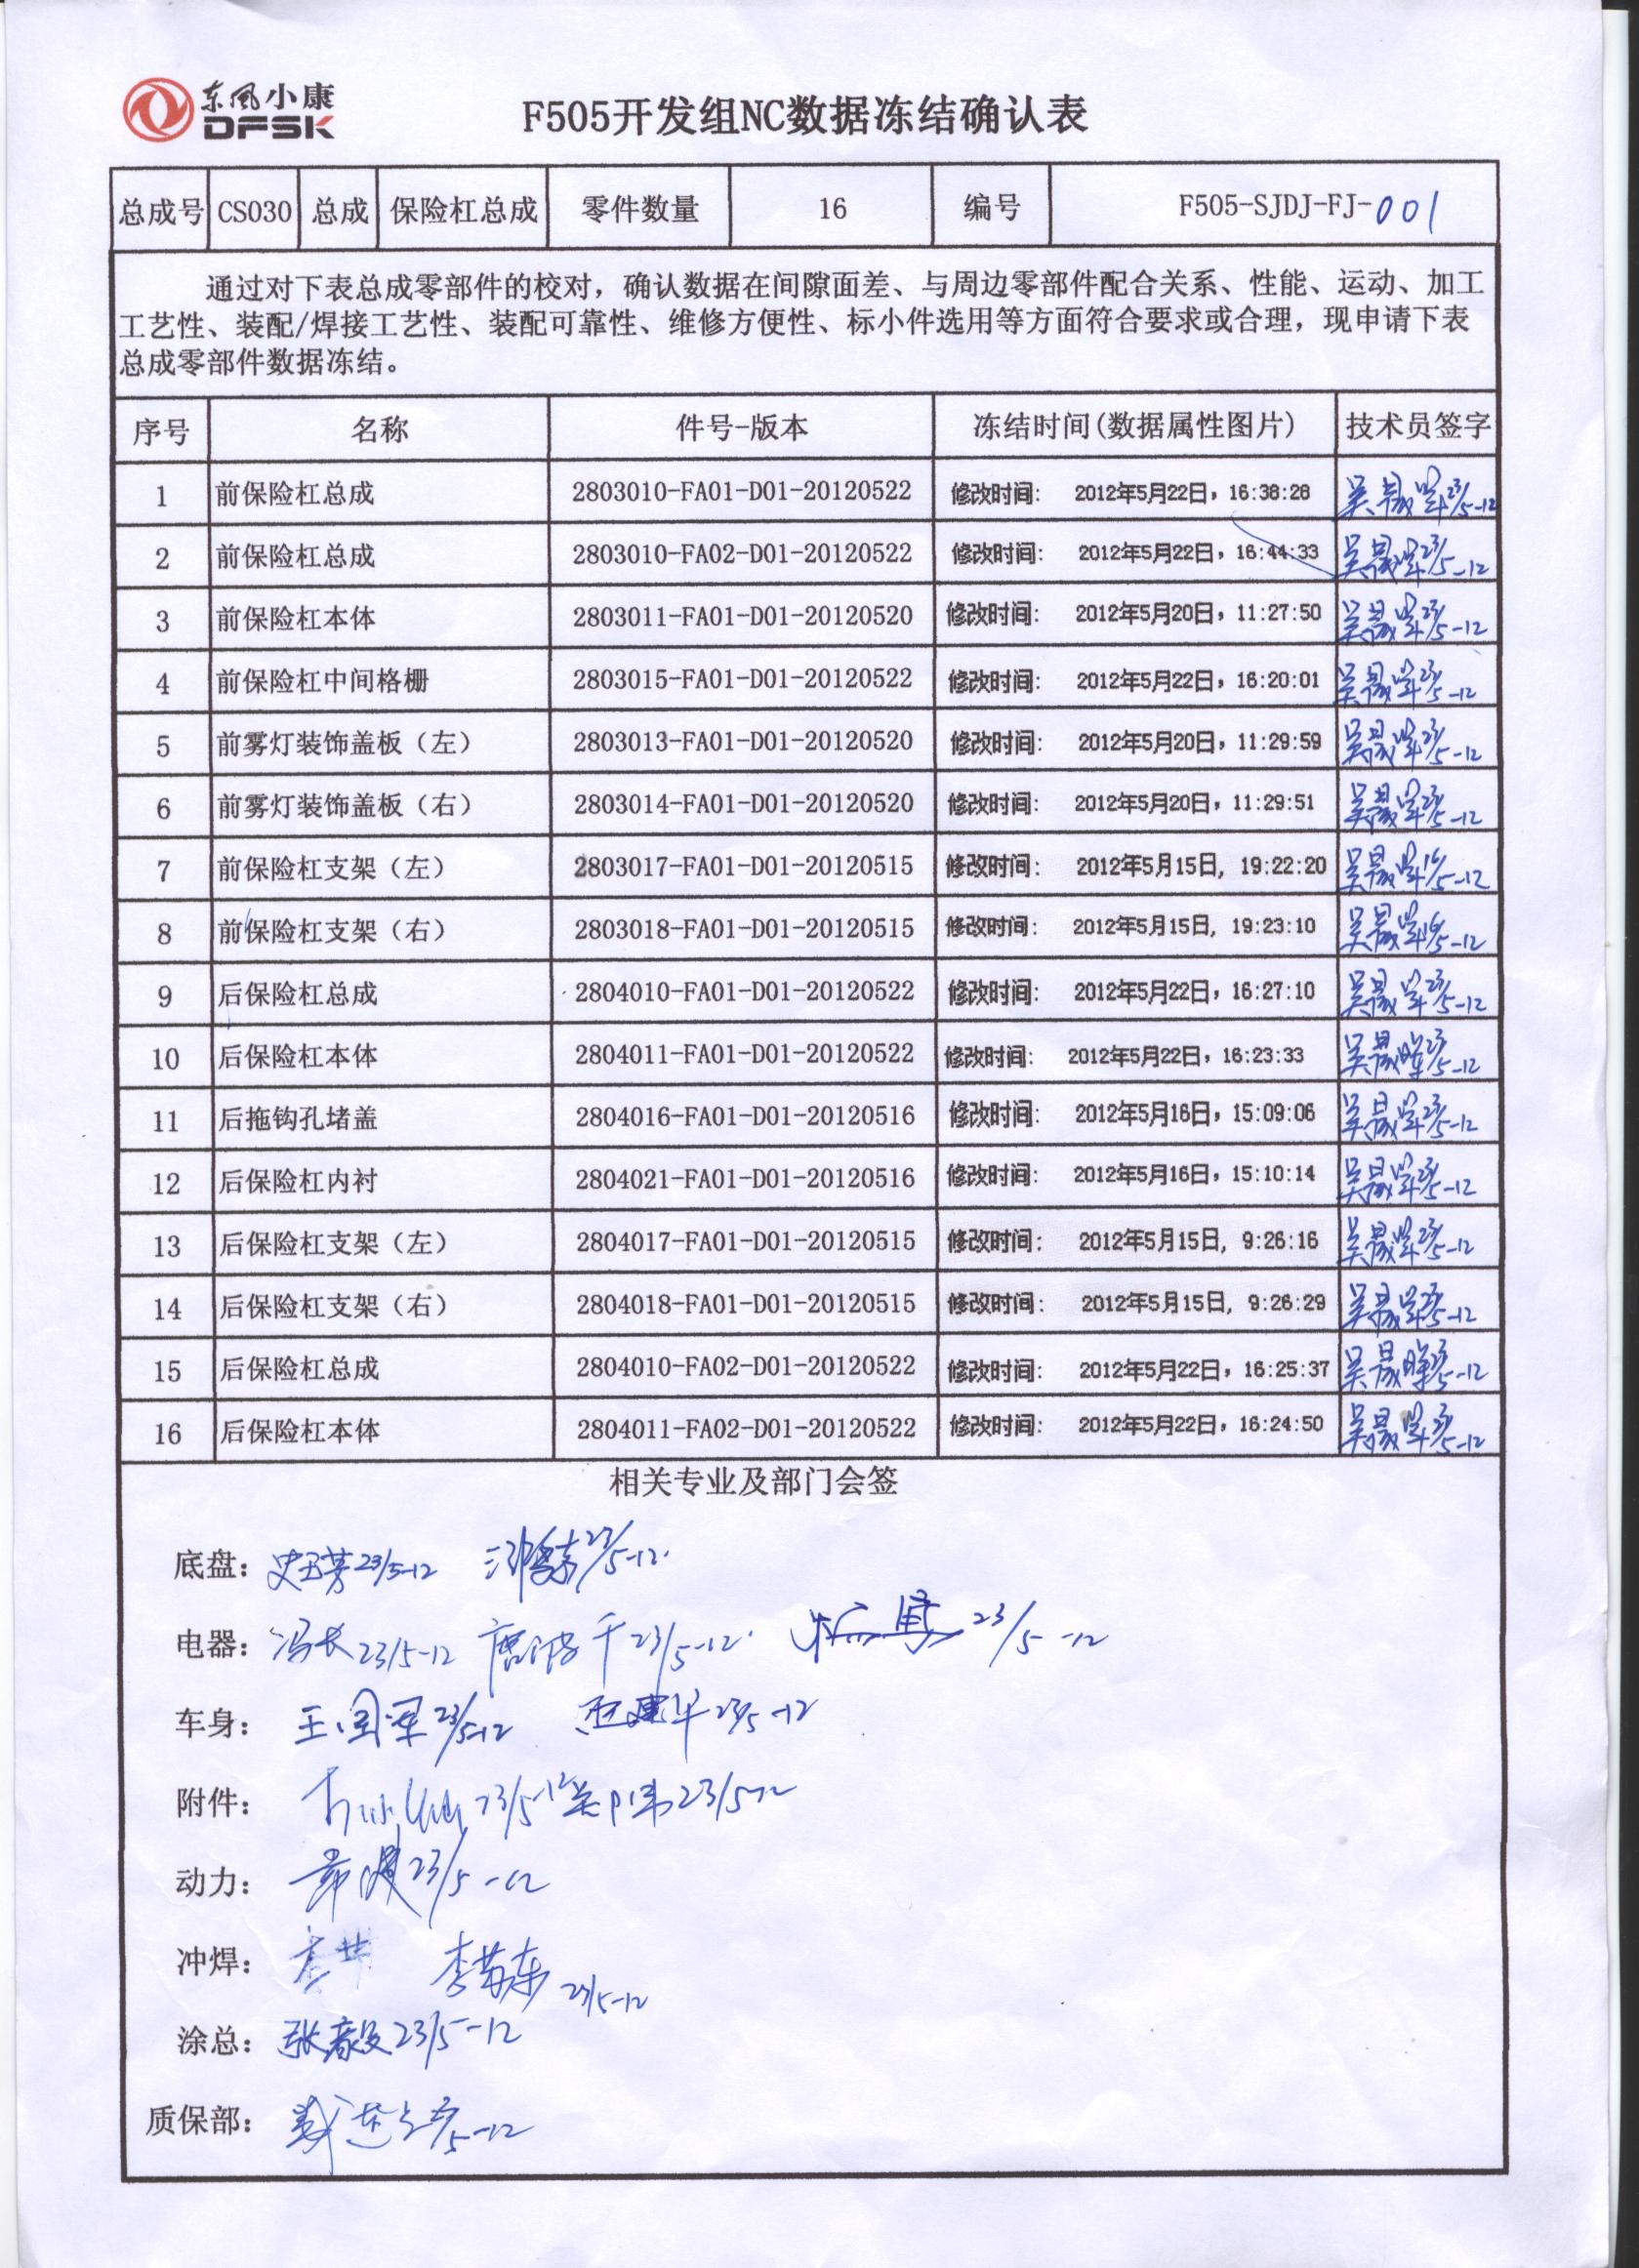 东风小康
DFSK
F505开发组NC数据冻结确认表
总成号 CS030 总成 保险杠总成 零件数量 16 编号 F505-SJDJ-FJ-001
通过对下表总成零部件的校对，确认数据在间隙面差、与周边零部件配合关系、性能、运动、加工
工艺性、装配/焊接工艺性、装配可靠性、维修方便性、标小件选用等方面符合要求或合理，现申请下表
总成零部件数据冻结。
序号 名称 件号-版本 冻结时间(数据属性图片) 技术员签字
1 前保险杠总成 2803010-FA01-D01-20120522 修改时间： 2012年5月22日，16:38:28 23/5-12
2 前保险杠总成 2803010-FA02-D01-20120522 修改时间： 2012年5月22日，16:44:33 23/5-12
3 前保险杠本体 2803011-FA01-D01-20120520 修改时间： 2012年5月20日，11:27:50 23/5-12
4 前保险杠中间格栅 2803015-FA01-D01-20120522 修改时间： 2012年5月22日，16:20:01 23/5-12
5 前雾灯装饰盖板（左） 2803013-FA01-D01-20120520 修改时间： 2012年5月20日，11:29:59 23/5-12
6 前雾灯装饰盖板（右） 2803014-FA01-D01-20120520 修改时间： 2012年5月20日，11:29:51 23/5-12
7 前保险杠支架（左） 2803017-FA01-D01-20120515 修改时间： 2012年5月15日, 19:22:20 16/5-12
8 前保险杠支架（右） 2803018-FA01-D01-20120515 修改时间： 2012年5月15日, 19:23:10 16/5-12
9 后保险杠总成 2804010-FA01-D01-20120522 修改时间： 2012年5月22日，16:27:10 23/5-12
10 后保险杠本体 2804011-FA01-D01-20120522 修改时间： 2012年5月22日，16:23:33 23/5-12
11 后拖钩孔堵盖 2804016-FA01-D01-20120516 修改时间： 2012年5月16日，15:09:06 23/5-12
12 后保险杠内衬 2804021-FA01-D01-20120516 修改时间： 2012年5月16日，15:10:14 23/5-12
13 后保险杠支架（左） 2804017-FA01-D01-20120515 修改时间： 2012年5月15日, 9:26:16 23/5-12
14 后保险杠支架（右） 2804018-FA01-D01-20120515 修改时间： 2012年5月15日, 9:26:29 23/5-12
15 后保险杠总成 2804010-FA02-D01-20120522 修改时间： 2012年5月22日，16:25:37 23/5-12
16 后保险杠本体 2804011-FA02-D01-20120522 修改时间： 2012年5月22日，16:24:50 23/5-12
相关专业及部门会签
底盘： 23/5-12 23/5-12
电器： 23/5-12 23/5-12 23/5-12
车身： 王国军 23/5-12 23/5-12
附件： 23/5-12 23/5-12
动力： 23/5-12
冲焊： 23/5-12
涂总： 张毅 23/5-12
质保部： 23/5-12